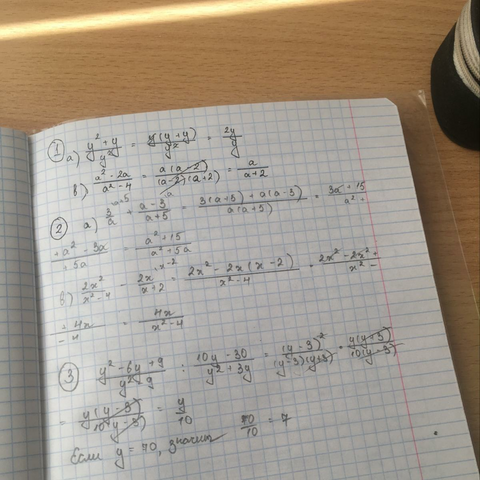 ① a) (y² + y)/y² = y(y + y)/y² = 2y/y
b) (a² - 2a)/(a² - 4) = a(a - 2)/((a - 2)(a + 2)) = a/(a + 2)
② a) 3/a + (a - 3)/(a + 5) = (3(a + 5) + a(a - 3))/(a(a + 5)) = (3a + 15
+ a² - 3a)/(+ 5a) = (a² + 15)/(a² + 5a)
b) 2x²/(x² - 4) - 2x/(x + 2) = (2x² - 2x(x - 2))/(x² - 4) = (2x² - 2x² +)/(x² -
= 4x/(- 4) = 4x/(x² - 4)
③ (y² - 6y + 9)/(y² - 9) : (10y - 30)/(y² + 3y) = (y - 3)²/((y - 3)(y + 3)) · y(y + 3)/(10(y - 3))
= y(y - 3)/(10(y - 3)) = y/10
Если y = 70, значит 70/10 = 7